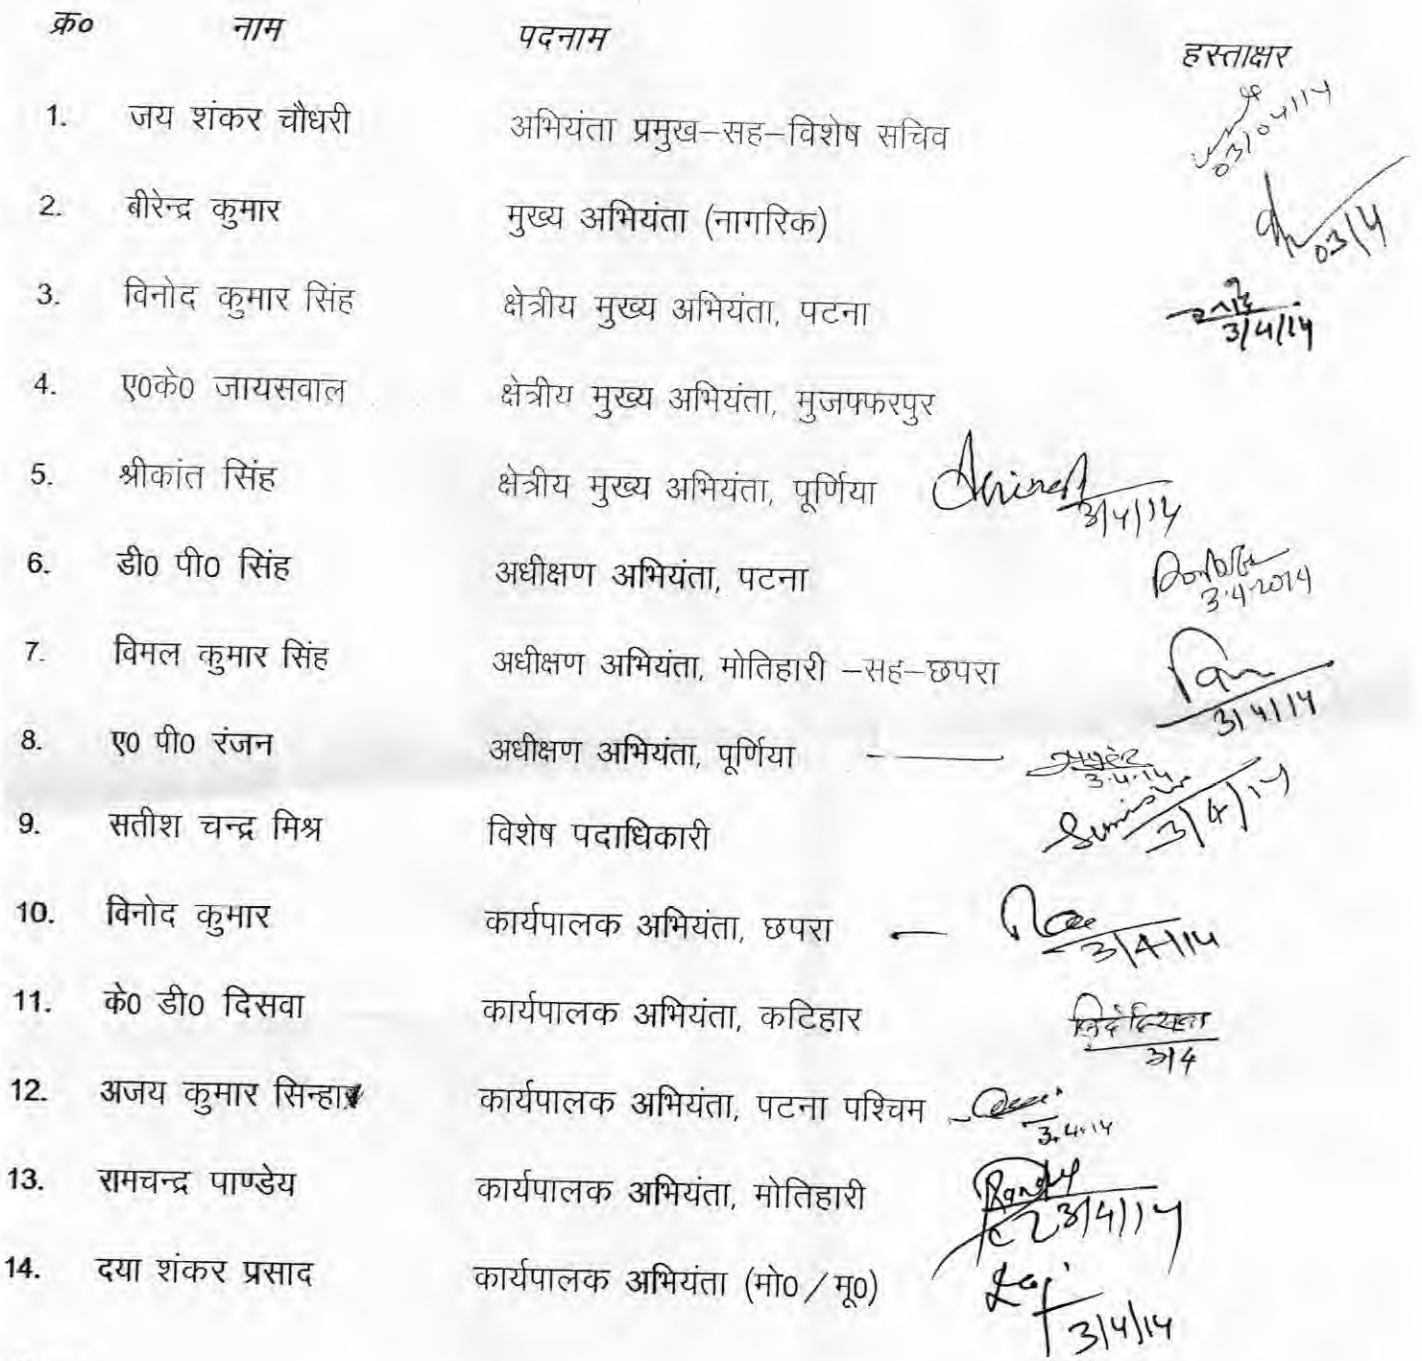 क्र० नाम पदनाम हस्ताक्षर
1. जय शंकर चौधरी अभियंता प्रमुख–सह–विशेष सचिव 03/04/14
2. बीरेन्द्र कुमार मुख्य अभियंता (नागरिक) 03/4
3. विनोद कुमार सिंह क्षेत्रीय मुख्य अभियंता, पटना 3/4/14
4. ए0के0 जायसवाल क्षेत्रीय मुख्य अभियंता, मुजफ्फरपुर
5. श्रीकांत सिंह क्षेत्रीय मुख्य अभियंता, पूर्णिया 3/4/14
6. डी0 पी0 सिंह अधीक्षण अभियंता, पटना 3.4.2014
7. विमल कुमार सिंह अधीक्षण अभियंता, मोतिहारी –सह–छपरा 3/4/14
8. ए0 पी0 रंजन अधीक्षण अभियंता, पूर्णिया 3.4.14
9. सतीश चन्द्र मिश्र विशेष पदाधिकारी 3/4/14
10. विनोद कुमार कार्यपालक अभियंता, छपरा 3/4/14
11. के0 डी0 दिसवा कार्यपालक अभियंता, कटिहार 3/4
12. अजय कुमार सिन्हा कार्यपालक अभियंता, पटना पश्चिम 3.4.14
13. रामचन्द्र पाण्डेय कार्यपालक अभियंता, मोतिहारी 3/4/14
14. दया शंकर प्रसाद कार्यपालक अभियंता (मो0 / मू0) 3/4/14